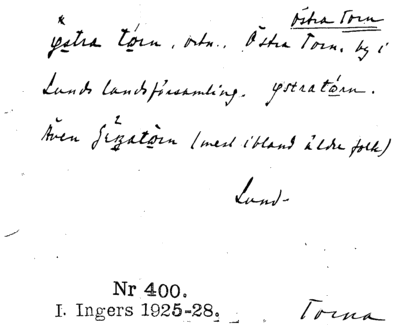 Östra Torn
östra tórn, ortn., Östra Torn, by i
Lunds landsförsamling. östratórn.
Även (mest ibland äldre folk)
Lund-
Nr 400.
I. Ingers 1925-28.
Torna